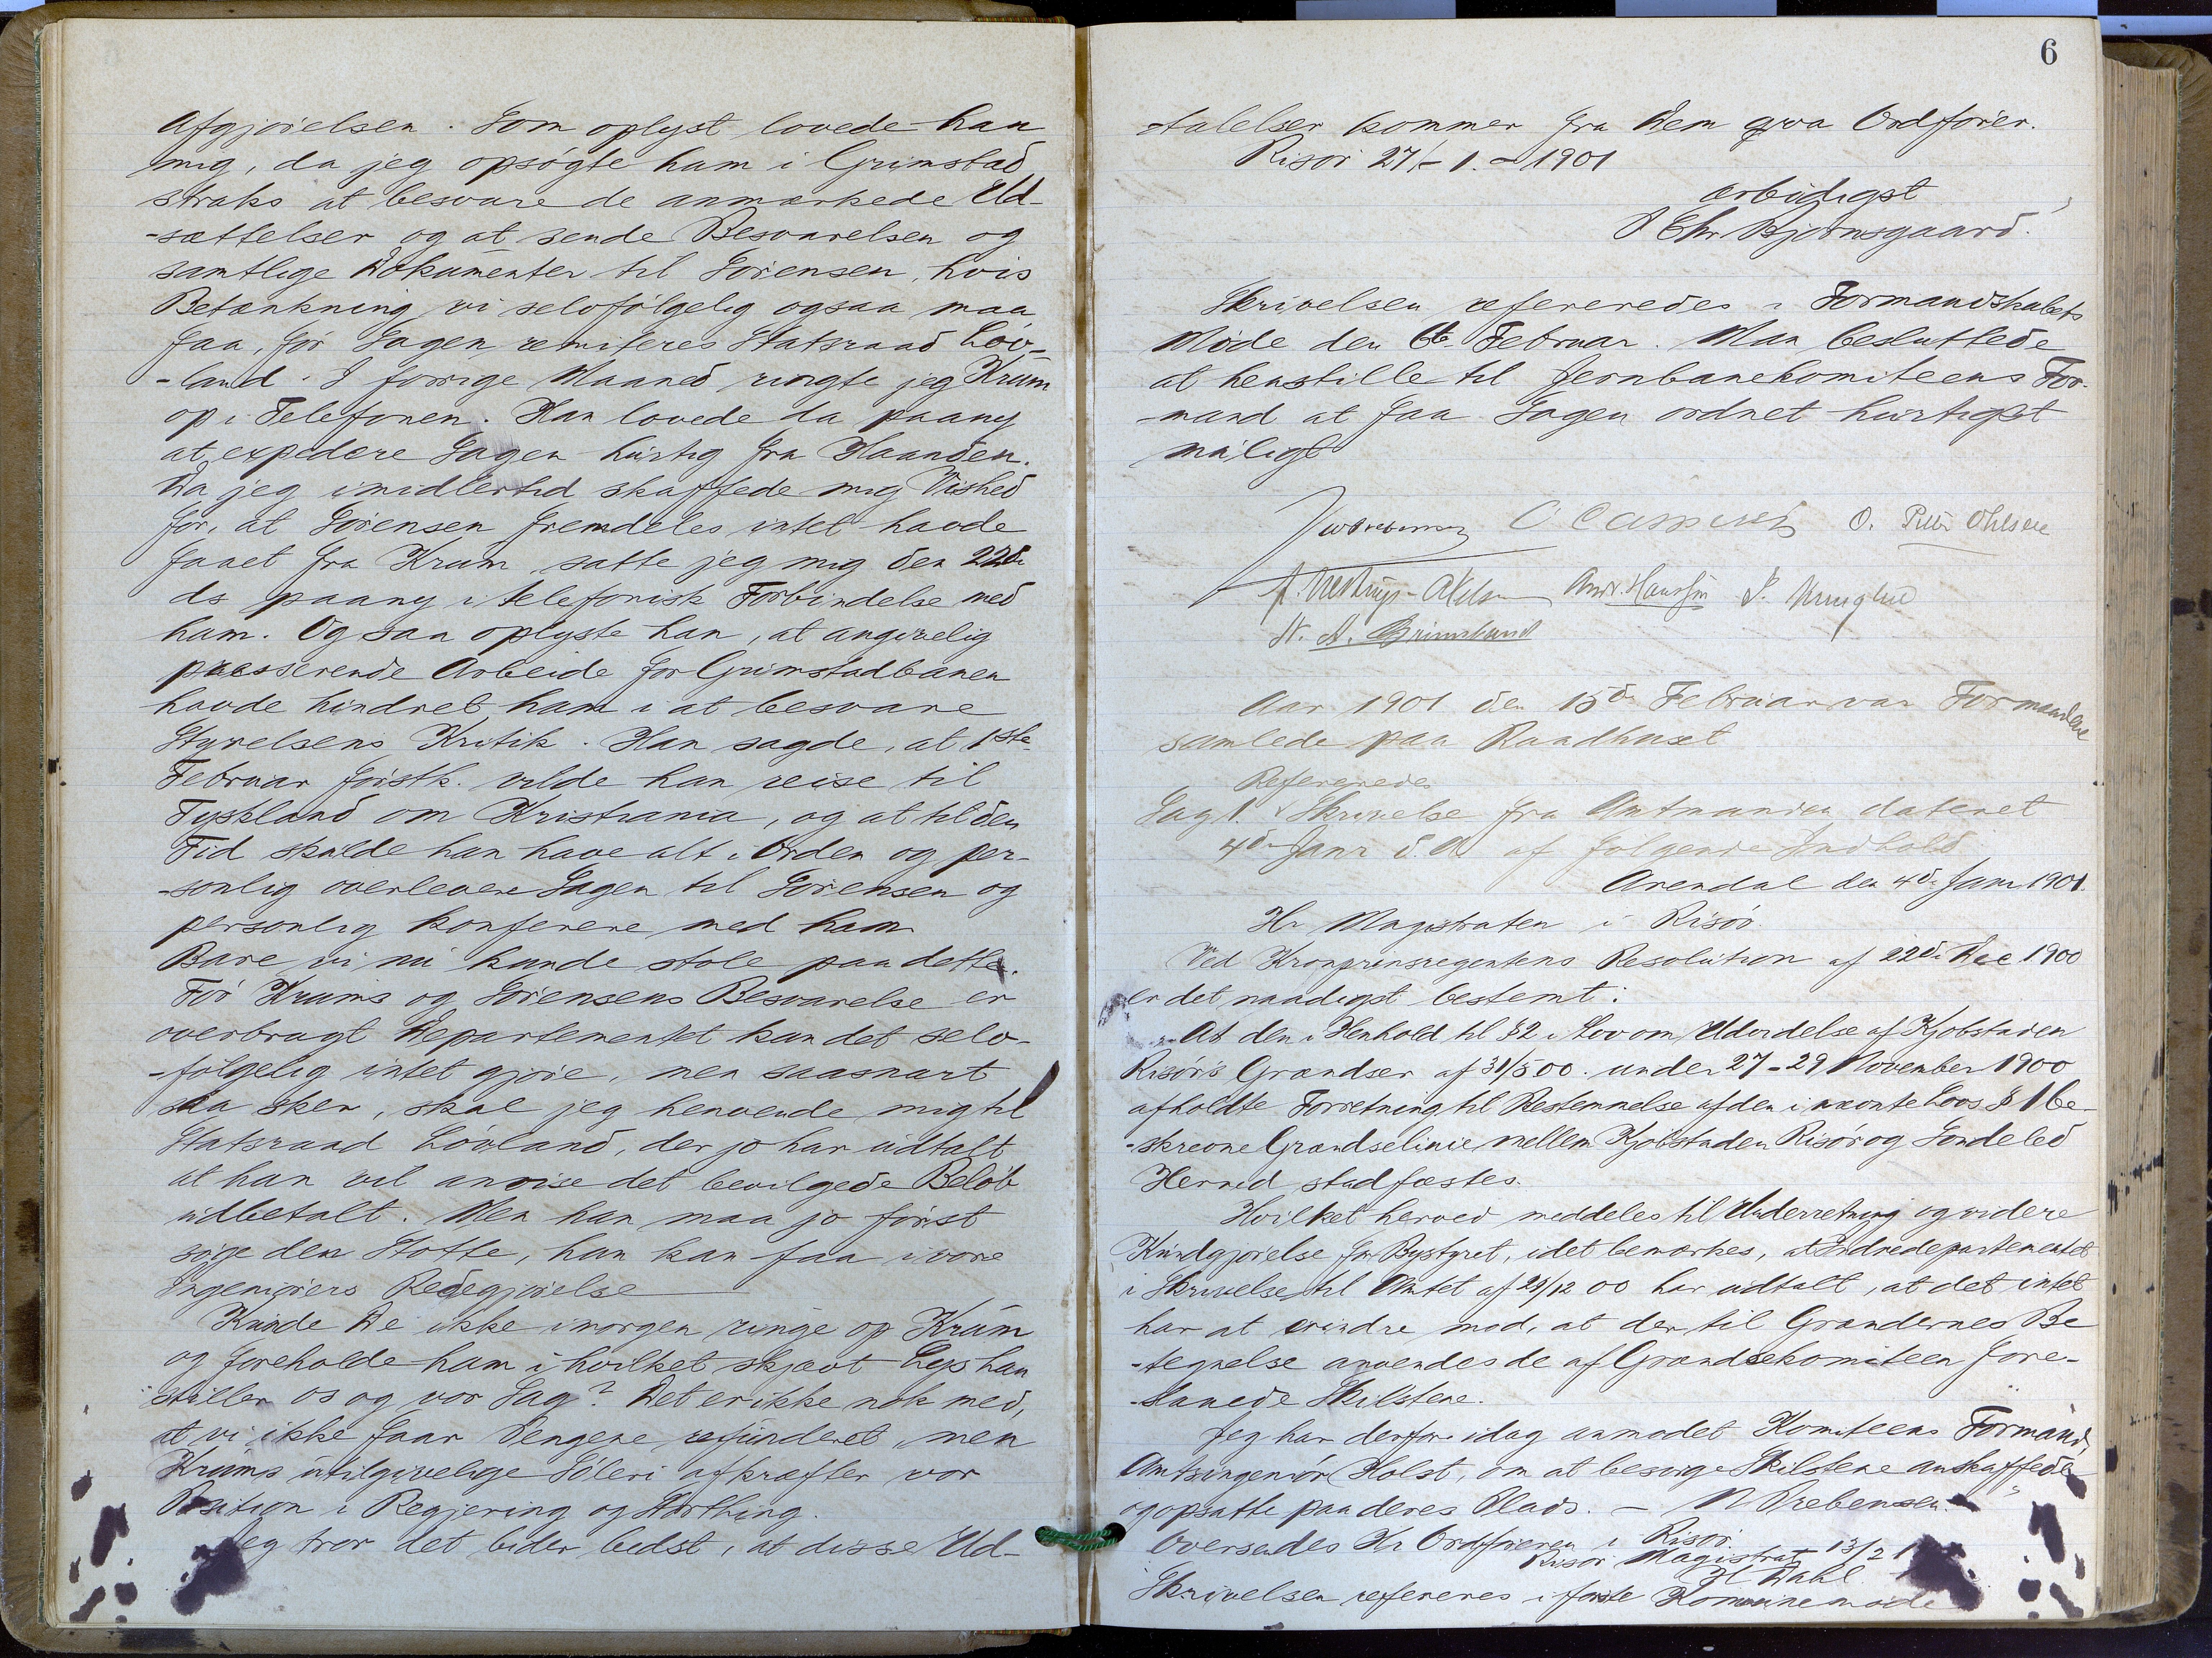 Afgjørelsen. Som oplyst lovede han
mig, da jeg opsøgte ham i Grimstad
straks at besvare de anmærkede Ud-
-sættelser og at sende Besvarelsen og
samtlige Dokumenter til Sørensen, hvis
Betænkning vi selvfølgelig ogsaa maa
faa, før Sagen remiteres Statsraad Løv-
-land. I forrige Maaned ringte jeg Krum
op i Telefonen. Han lovede da paany
at expedere Sagen hurtig fra Haanden.
Da jeg imidlertid skaffede mig Vished
for, at Sørensen fremdeles intet havde
faaet fra Krum satte jeg mig den 22de
ds paany i telefonisk Forbindelse med
ham. Og saa oplyste han, at angivelig
presserende Arbeide for Grimstadbanen
havde hindret ham i at besvare
Styrelsens Kritik. Han sagde, at 1ste
Februar førstk. vilde han reise til
Tyskland om Kristiania, og at til den
Tid skulde han have alt i Orden og per-
-sonlig overlevere Sagen til Sørensen og
personlig konferere med ham
Bare vi nu kunde stole paa dette.
Før Krums og Sørensens Besvarelse er
overbragt Departementet kan det selv-
-følgelig intet gjøre, men saasnart
saa sker, skal jeg henvende mig til
Statsraad Løvland, der jo har udtalt
at han vil anvise det bevilgede Beløb
udbetalt. Men han maa jo først
søge den Støtte, han kan faa i vore
Ingeniørers Redegjørelse
Kunde De ikke imorgen ringe op Krum
og foreholde ham i hvilket skjævt Lys han
stiller os og vor Sag? Det er ikke nok med,
at vi ikke faar Pengene refunderet, men
Krums utilgivelige Søleri afkræfter vor
Position i Regjering og Storthing.
Jeg tror det lider bedst, at disse Ud-
6
-talelser kommer fra Dem qva Ordfører.
Risør 27/-1.-1901
ærbødigst
Chr Bjornsgaard.
Skrivelsen refereredes i Formandskabets
Møde den 6te Februar. Man besluttede
at henstille til Jernbanekomiteens For-
-mand at faa Sagen ordnet hurtigst
muligt
O. Peter Ohlsen
Andr. Hansen
N. A. Grimsland
Aar 1901 den 15de Februar var Formændene
samlede paa Raadhuset
Refereredes
Sag 1. Skrivelse fra Amtmanden dateret
4de Janr d. A. af følgende Indhold
Arendal den 4de Janr 1901.
Hr Magistraten i Risør.
Ved Kronprinsregentens Resolution af 22de Dec 1900
er det naadigst bestemt:
At den i Henhold til §2 i Lov om Udvidelse af Kjøbstaden
Risørs Grændser af 31/5 00. under 27-29 November 1900
afholdte Forretning til Bestemmelse af den i nævnte Lovs § 1 be-
-skrevne Grændselinie mellem Kjøbstaden Risør og Søndeled
Herred stadfæstes.
Hvilket herved meddeles til Underretning og videre
Kundgjørelse for Bystyret, idet bemærkes, at Indredepartementet
i Skrivelse til Amtet af 29/12 00 har udtalt, at det intet
har at erindre mod, at der til Grændernes Be
-tegnelse anvendes de af Grændsekomiteen fore-
-slaaede Skilstene.
Jeg har derfor idag anmodet Komiteens Formand,
Amtsingeniør Holst, om at besørge Skilstene anskaffede
og opsatte paa deres Plads. — N Prebensen.
Oversendes Hr Ordføreren i Risør.
Risør Magistrat 13/2 1
H Dahl
Skrivelsen refereres i første Kommunemøde